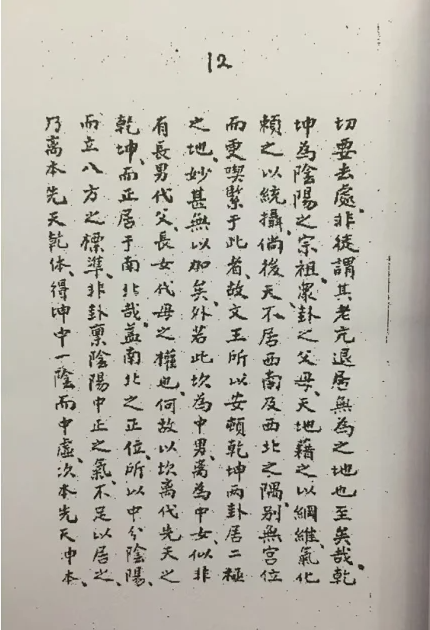 12
切要去處、非徒謂其老亢退居無為之地也至矣哉、乾
坤為陰陽之宗祖、眾卦之父母、天地藉之以綱維氣化
賴之以統攝、倘後天不居西南及西北之隅、別無宮位
而更喫緊于此者、故文王所以安頓乾坤兩卦居二極
之地、妙甚無以加矣、外若此坎為中男、离為中女、似非
有長男代父、長女代母之權也、何故以坎离代先天之
乾坤、而正居于南北哉、蓋南北之正位、所以中分陰陽、
而立八方之標準、非卦稟陰陽中正之氣、不足以居之、
乃离本先天乾体、得坤中一陰而中虛、次本先天中本、